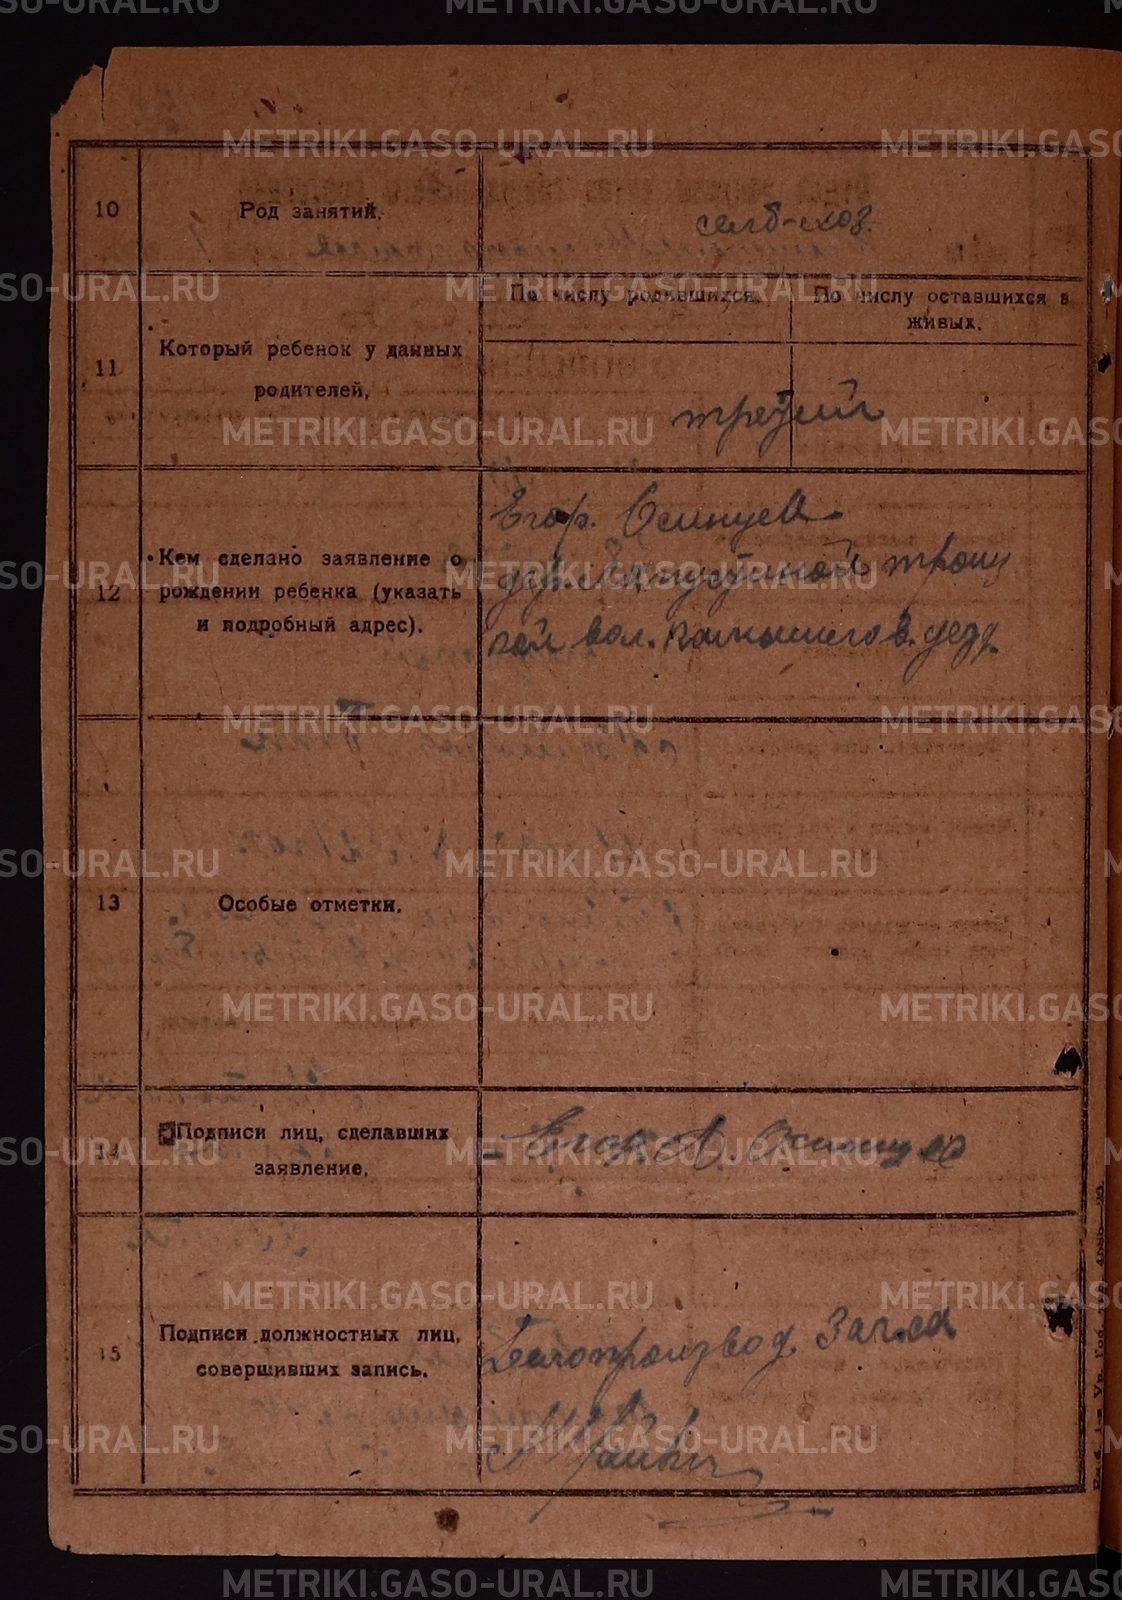 10
Род занятий.
сель-хоз.
11
Который ребенок у данных
родителей,
По числу родившихся.
По числу оставшихся в
живых.
третий
12
Кем сделано заявление о
рождении ребенка (указать
и подробный адрес).
Егор. Осинцев
дер. Лапустиной троиц
кой вол. Камышлов.
13
Особые отметки.
14
Подписи лиц, сделавших
заявление.
Егор А. Осинцев
15
Подписи должностных лиц,
совершивших запись.
Делопроизвод. Загса
METRIKI.GASO-URAL.RU